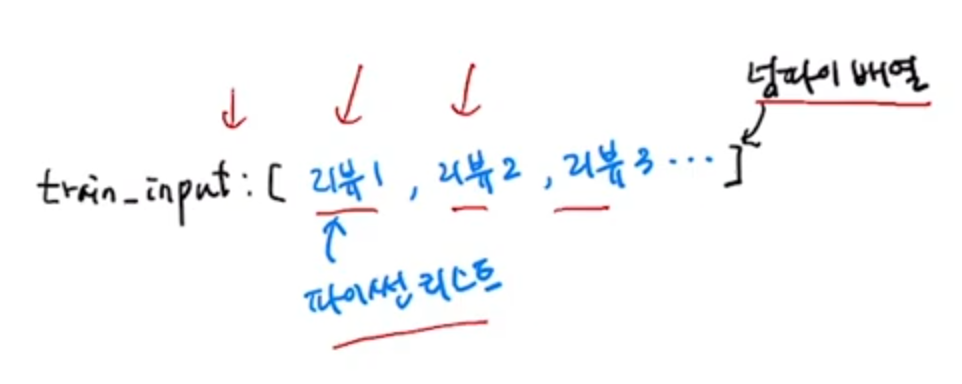 넘파이 배열
train_input : [ 리뷰1 , 리뷰2 , 리뷰3 ··· ]
파이썬 리스트